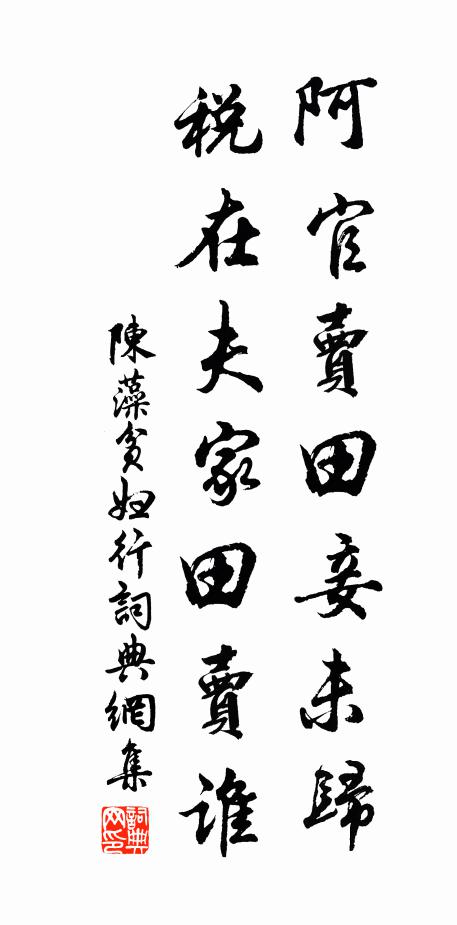 阿官賣田妾未歸
税在夫家田賣誰
陳藻貧婦行詞典網集
詞典网印